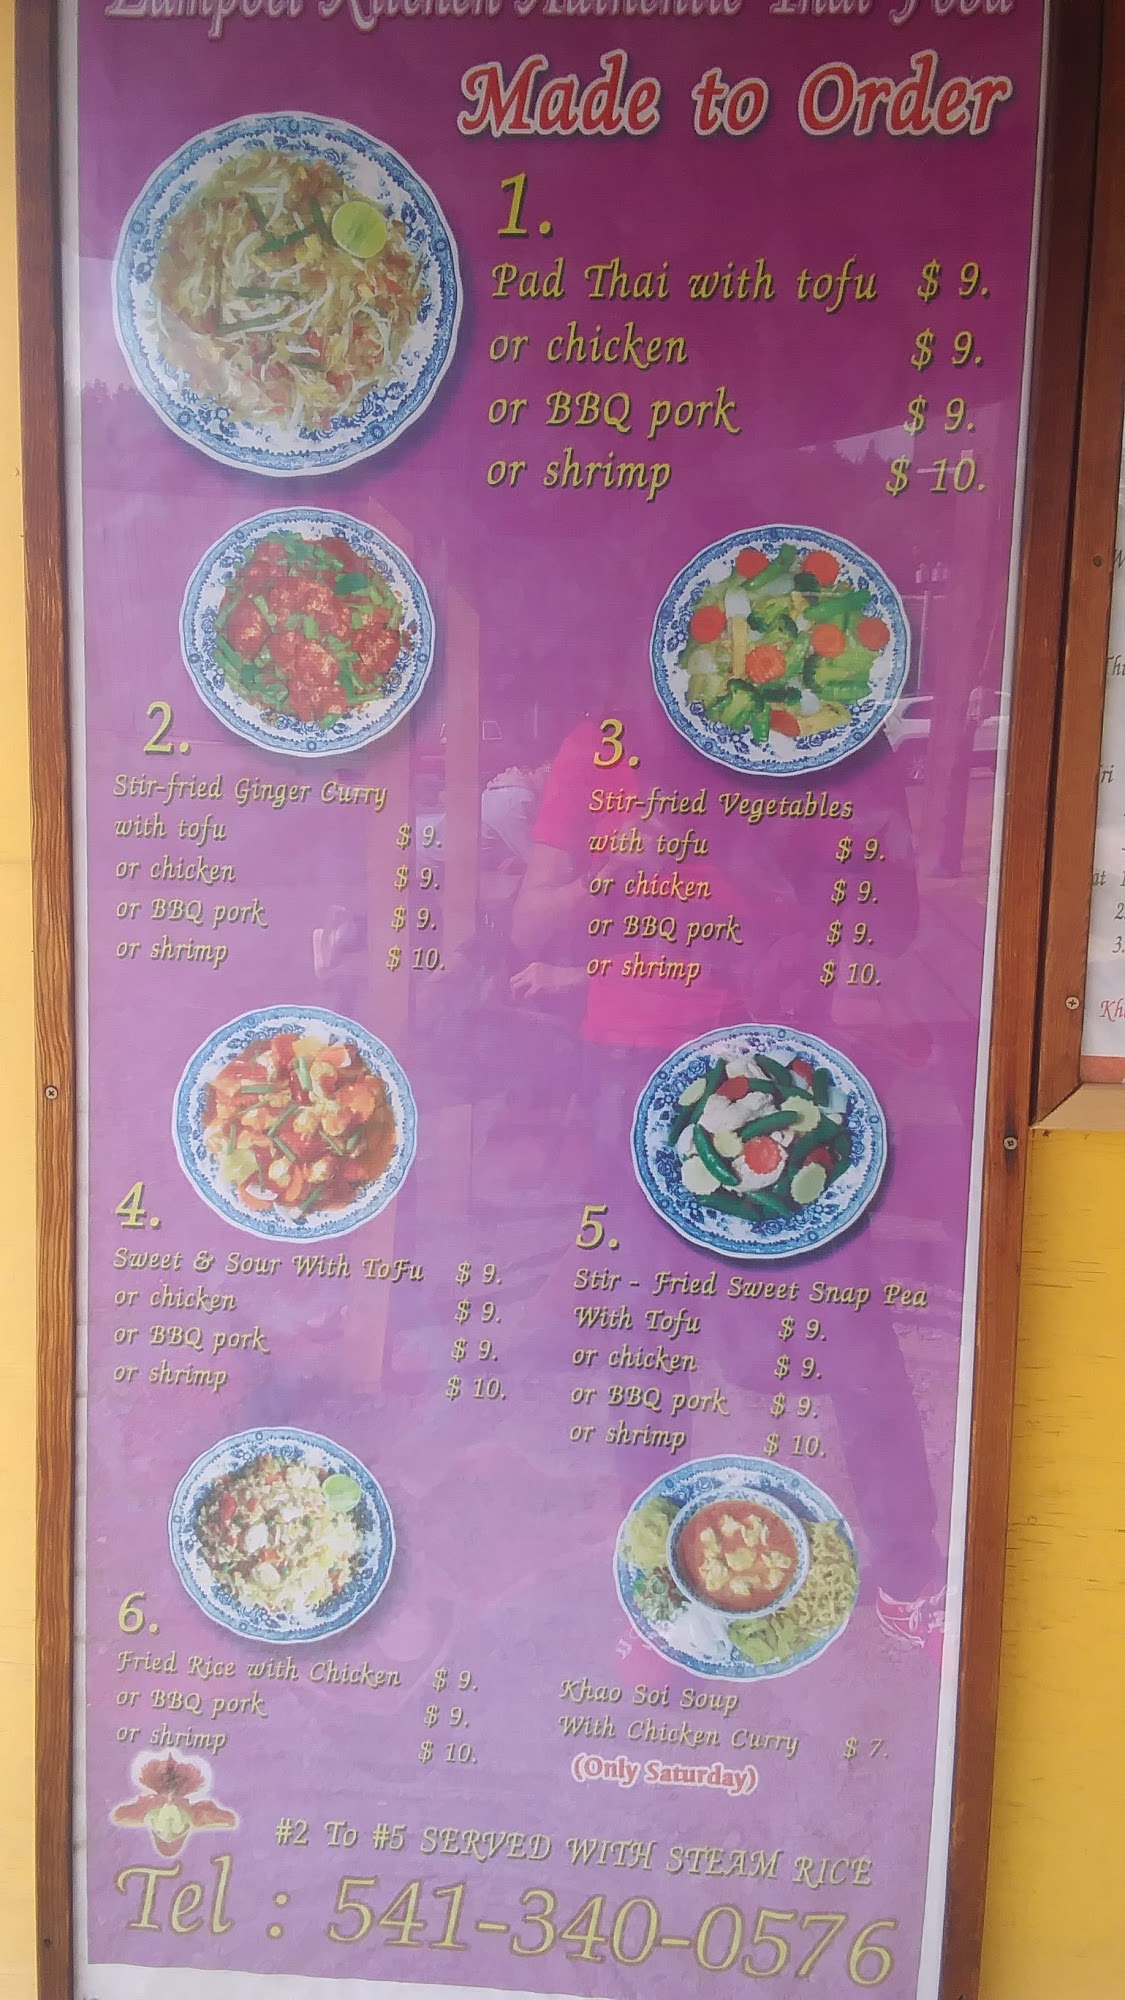 Kitchen Authentic Thai Food
Made to Order
1.
Pad Thai with tofu $ 9.
or chicken $ 9.
or BBQ pork $ 9.
or shrimp $ 10.
2.
Stir-fried Ginger Curry
with tofu $ 9.
or chicken $ 9.
or BBQ pork $ 9.
or shrimp $ 10.
3.
Stir-fried Vegetables
with tofu $ 9.
or chicken $ 9.
or BBQ pork $ 9.
or shrimp $ 10.
4.
Sweet & Sour With ToFu $ 9.
or chicken $ 9.
or BBQ pork $ 9.
or shrimp $ 10.
5.
Stir - Fried Sweet Snap Pea
With Tofu $ 9.
or chicken $ 9.
or BBQ pork $ 9.
or shrimp $ 10.
6.
Fried Rice with Chicken $ 9.
or BBQ pork $ 9.
or shrimp $ 10.
Khao Soi Soup
With Chicken Curry $ 7.
(Only Saturday)
#2 To #5 SERVED WITH STEAM RICE
Tel : 541-340-0576